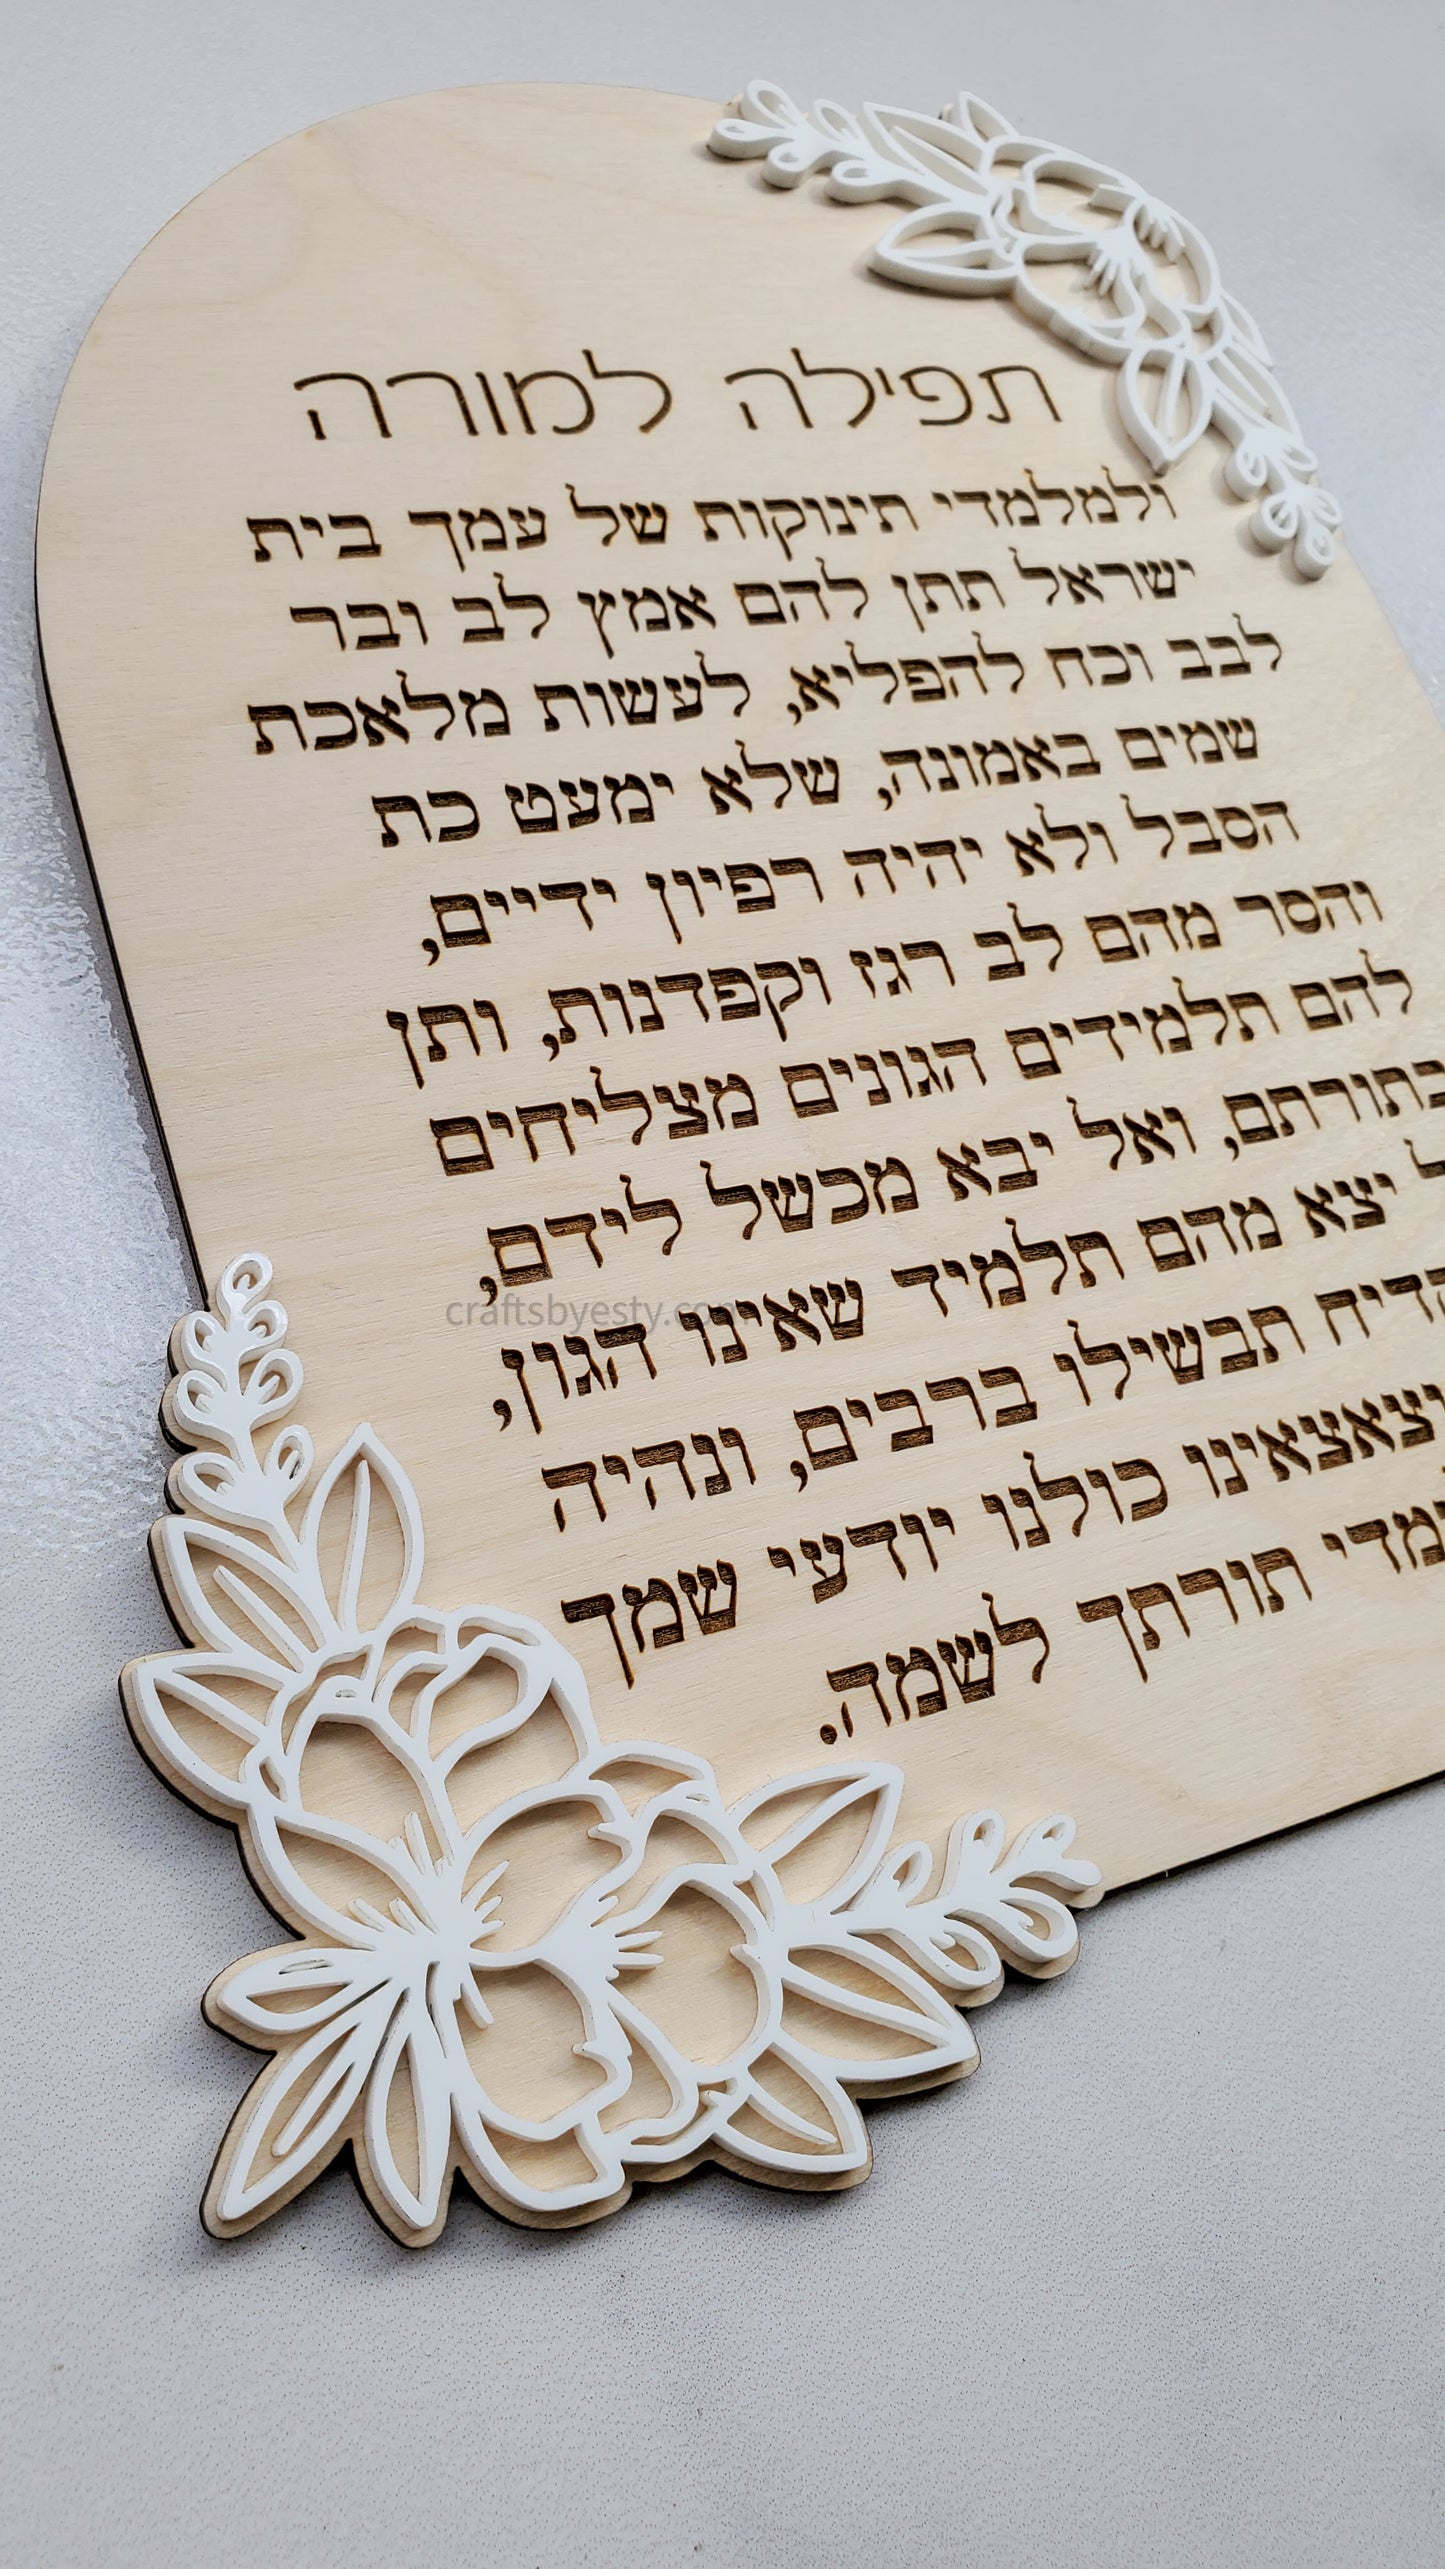 תפילה למורה
ולמלמדי תינוקות של עמך בית
ישראל תתן להם אמץ לב ובר
לבב וכח להפליא, לעשות מלאכת
שמים באמונה, שלא ימעט כת
הסבל ולא יהיה רפיון ידיים,
והסר מהם לב רגז וקפדנות, ותן
להם תלמידים הגונים מצליחים
בתורתם, ואל יבא מכשל לידם,
יצא מהם תלמיד שאינו הגון,
תבשילו ברבים, ונהיה
וצאצאינו כולנו יודעי שמך
תורתך לשמה.
craftsbyesty.com